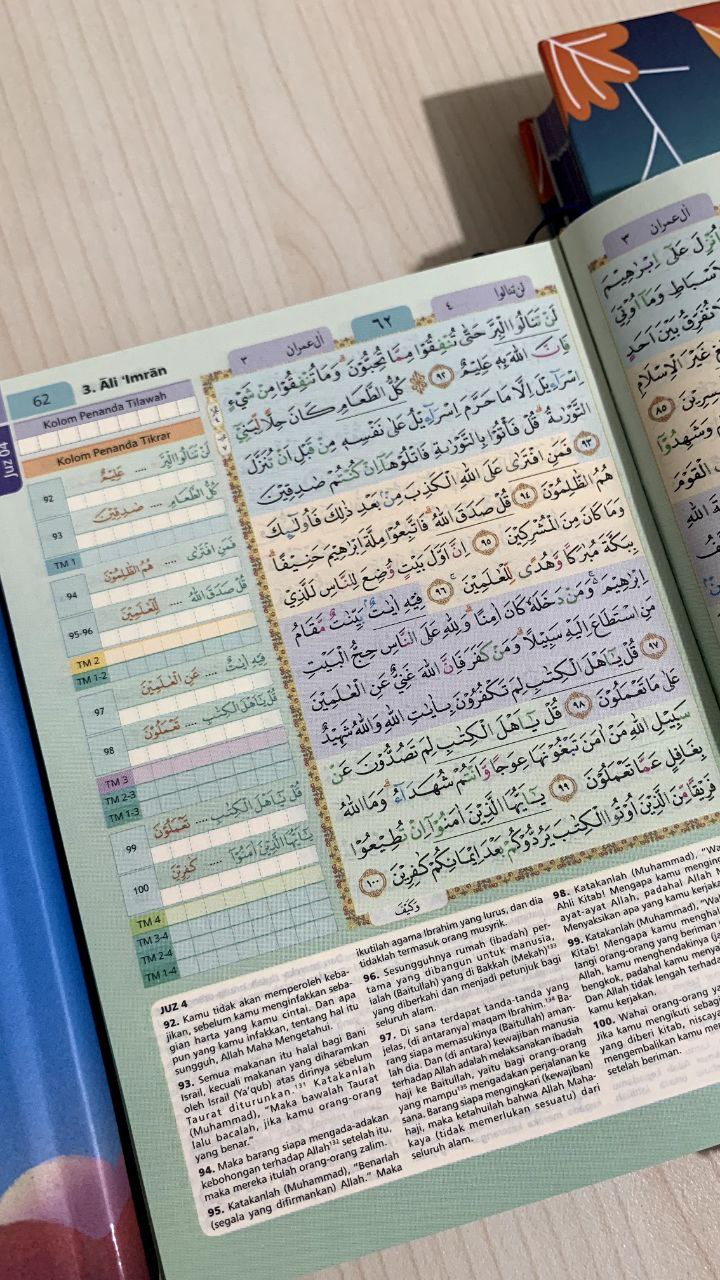 62
3. Āli 'Imrān
اٰل عمران ٣
٦٢
لن تنالوا ٤
Juz 04
Kolom Penanda Tilawah
Kolom Penanda Tikrar
92 لَنْ تَنَالُوا الْبِرَّ .... عَلِيْمٌ
93 كُلُّ الطَّعَامِ .... صٰدِقِيْنَ
TM 1
94 فَمَنِ افْتَرٰى .... هُمُ الظّٰلِمُوْنَ
95-96 قُلْ صَدَقَ اللّٰهُ .... لِّلْعٰلَمِيْنَ
TM 2
TM 1-2
97 فِيْهِ اٰيٰتٌ .... عَنِ الْعٰلَمِيْنَ
98 قُلْ يٰٓاَهْلَ الْكِتٰبِ .... تَعْمَلُوْنَ
TM 3
TM 2-3
TM 1-3
99 قُلْ يٰٓاَهْلَ الْكِتٰبِ .... تَعْمَلُوْنَ
100 يٰٓاَيُّهَا الَّذِيْنَ اٰمَنُوْٓا .... كٰفِرِيْنَ
TM 4
TM 3-4
TM 2-4
TM 1-4
لَنْ تَنَالُوا الْبِرَّ حَتّٰى تُنْفِقُوْا مِمَّا تُحِبُّوْنَ ۗوَمَا تُنْفِقُوْا مِنْ شَيْءٍ
فَاِنَّ اللّٰهَ بِهٖ عَلِيْمٌ ٩٢ ۞ كُلُّ الطَّعَامِ كَانَ حِلًّا لِّبَنِيْٓ
اِسْرَاۤءِيْلَ اِلَّا مَا حَرَّمَ اِسْرَاۤءِيْلُ عَلٰى نَفْسِهٖ مِنْ قَبْلِ اَنْ تُنَزَّلَ
التَّوْرٰىةُ ۗ قُلْ فَأْتُوْا بِالتَّوْرٰىةِ فَاتْلُوْهَآ اِنْ كُنْتُمْ صٰدِقِيْنَ
٩٣ فَمَنِ افْتَرٰى عَلَى اللّٰهِ الْكَذِبَ مِنْۢ بَعْدِ ذٰلِكَ فَاُولٰۤىِٕكَ
هُمُ الظّٰلِمُوْنَ ٩٤ قُلْ صَدَقَ اللّٰهُ ۗ فَاتَّبِعُوْا مِلَّةَ اِبْرٰهِيْمَ حَنِيْفًاۗ
وَمَا كَانَ مِنَ الْمُشْرِكِيْنَ ٩٥ اِنَّ اَوَّلَ بَيْتٍ وُّضِعَ لِلنَّاسِ لَلَّذِيْ
بِبَكَّةَ مُبٰرَكًا وَّهُدًى لِّلْعٰلَمِيْنَ ٩٦ فِيْهِ اٰيٰتٌۢ بَيِّنٰتٌ مَّقَامُ
اِبْرٰهِيْمَ ەۚ وَمَنْ دَخَلَهٗ كَانَ اٰمِنًا ۗ وَلِلّٰهِ عَلَى النَّاسِ حِجُّ الْبَيْتِ
مَنِ اسْتَطَاعَ اِلَيْهِ سَبِيْلًا ۗ وَمَنْ كَفَرَ فَاِنَّ اللّٰهَ غَنِيٌّ عَنِ الْعٰلَمِيْنَ
٩٧ قُلْ يٰٓاَهْلَ الْكِتٰبِ لِمَ تَكْفُرُوْنَ بِاٰيٰتِ اللّٰهِ وَاللّٰهُ شَهِيْدٌ
عَلٰى مَا تَعْمَلُوْنَ ٩٨ قُلْ يٰٓاَهْلَ الْكِتٰبِ لِمَ تَصُدُّوْنَ عَنْ
سَبِيْلِ اللّٰهِ مَنْ اٰمَنَ تَبْغُوْنَهَا عِوَجًا وَّاَنْتُمْ شُهَدَاۤءُ ۗ وَمَا اللّٰهُ
بِغَافِلٍ عَمَّا تَعْمَلُوْنَ ٩٩ يٰٓاَيُّهَا الَّذِيْنَ اٰمَنُوْٓا اِنْ تُطِيْعُوْا
فَرِيْقًا مِّنَ الَّذِيْنَ اُوْتُوا الْكِتٰبَ يَرُدُّوْكُمْ بَعْدَ اِيْمَانِكُمْ كٰفِرِيْنَ ١٠٠
وَكَيْفَ
JUZ 4
92. Kamu tidak akan memperoleh keba-
jikan, sebelum kamu menginfakkan seba-
gian harta yang kamu cintai. Dan apa
pun yang kamu infakkan, tentang hal itu
sungguh, Allah Maha Mengetahui.
93. Semua makanan itu halal bagi Bani
Israil, kecuali makanan yang diharamkan
oleh Israil (Ya'qub) atas dirinya sebelum
Taurat diturunkan.¹³¹ Katakanlah
(Muhammad), "Maka bawalah Taurat
lalu bacalah, jika kamu orang-orang
yang benar."
94. Maka barang siapa mengada-adakan
kebohongan terhadap Allah¹³² setelah itu,
maka mereka itulah orang-orang zalim.
95. Katakanlah (Muhammad), "Benarlah
(segala yang difirmankan) Allah." Maka
ikutilah agama Ibrahim yang lurus, dan dia
tidaklah termasuk orang musyrik.
96. Sesungguhnya rumah (ibadah) per-
tama yang dibangun untuk manusia,
ialah (Baitullah) yang di Bakkah (Mekah)¹³³
yang diberkahi dan menjadi petunjuk bagi
seluruh alam.
97. Di sana terdapat tanda-tanda yang
jelas, (di antaranya) maqam Ibrahim.¹³⁴ Ba-
rang siapa memasukinya (Baitullah) aman-
lah dia. Dan (di antara) kewajiban manusia
terhadap Allah adalah melaksanakan ibadah
haji ke Baitullah, yaitu bagi orang-orang
yang mampu¹³⁵ mengadakan perjalanan ke
sana. Barang siapa mengingkari (kewajiban)
haji, maka ketahuilah bahwa Allah Maha-
kaya (tidak memerlukan sesuatu) dari
seluruh alam.
98. Katakanlah (Muhammad), "Wa
Ahli Kitab! Mengapa kamu mengin
ayat-ayat Allah, padahal Allah
Menyaksikan apa yang kamu kerjak
99. Katakanlah (Muhammad), "Wa
Kitab! Mengapa kamu mengha
langi orang-orang yang beriman d
Allah, kamu menghendakinya (ja
bengkok, padahal kamu menya
Dan Allah tidak lengah terhada
kamu kerjakan.
100. Wahai orang-orang ya
Jika kamu mengikuti sebag
yang diberi kitab, niscaya
mengembalikan kamu me
setelah beriman.
اٰل عمران ٣
اُنْزِلَ عَلٰٓى اِبْرٰهِيْمَ
وَمَآ اُوْتِيَ
لَا نُفَرِّقُ بَيْنَ اَحَدٍ
غَيْرَ الْاِسْلَامِ
٨٥
وَشَهِدُوْٓا
الْقَوْمَ